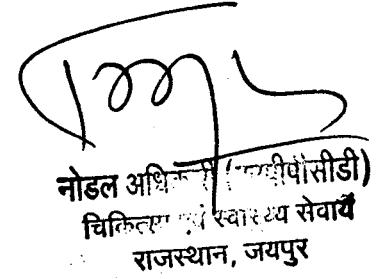 नोडल अधिकारी
चिकित्सा एवं स्वास्थ्य सेवायें
राजस्थान, जयपुर